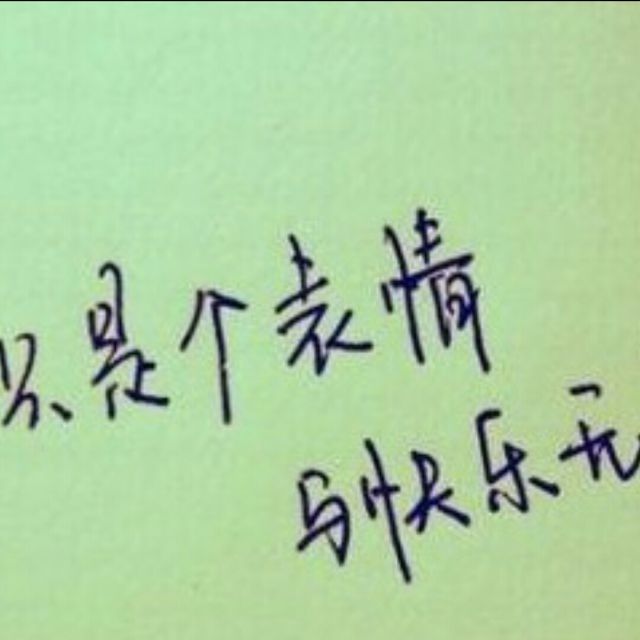 只是个表情
与快乐无